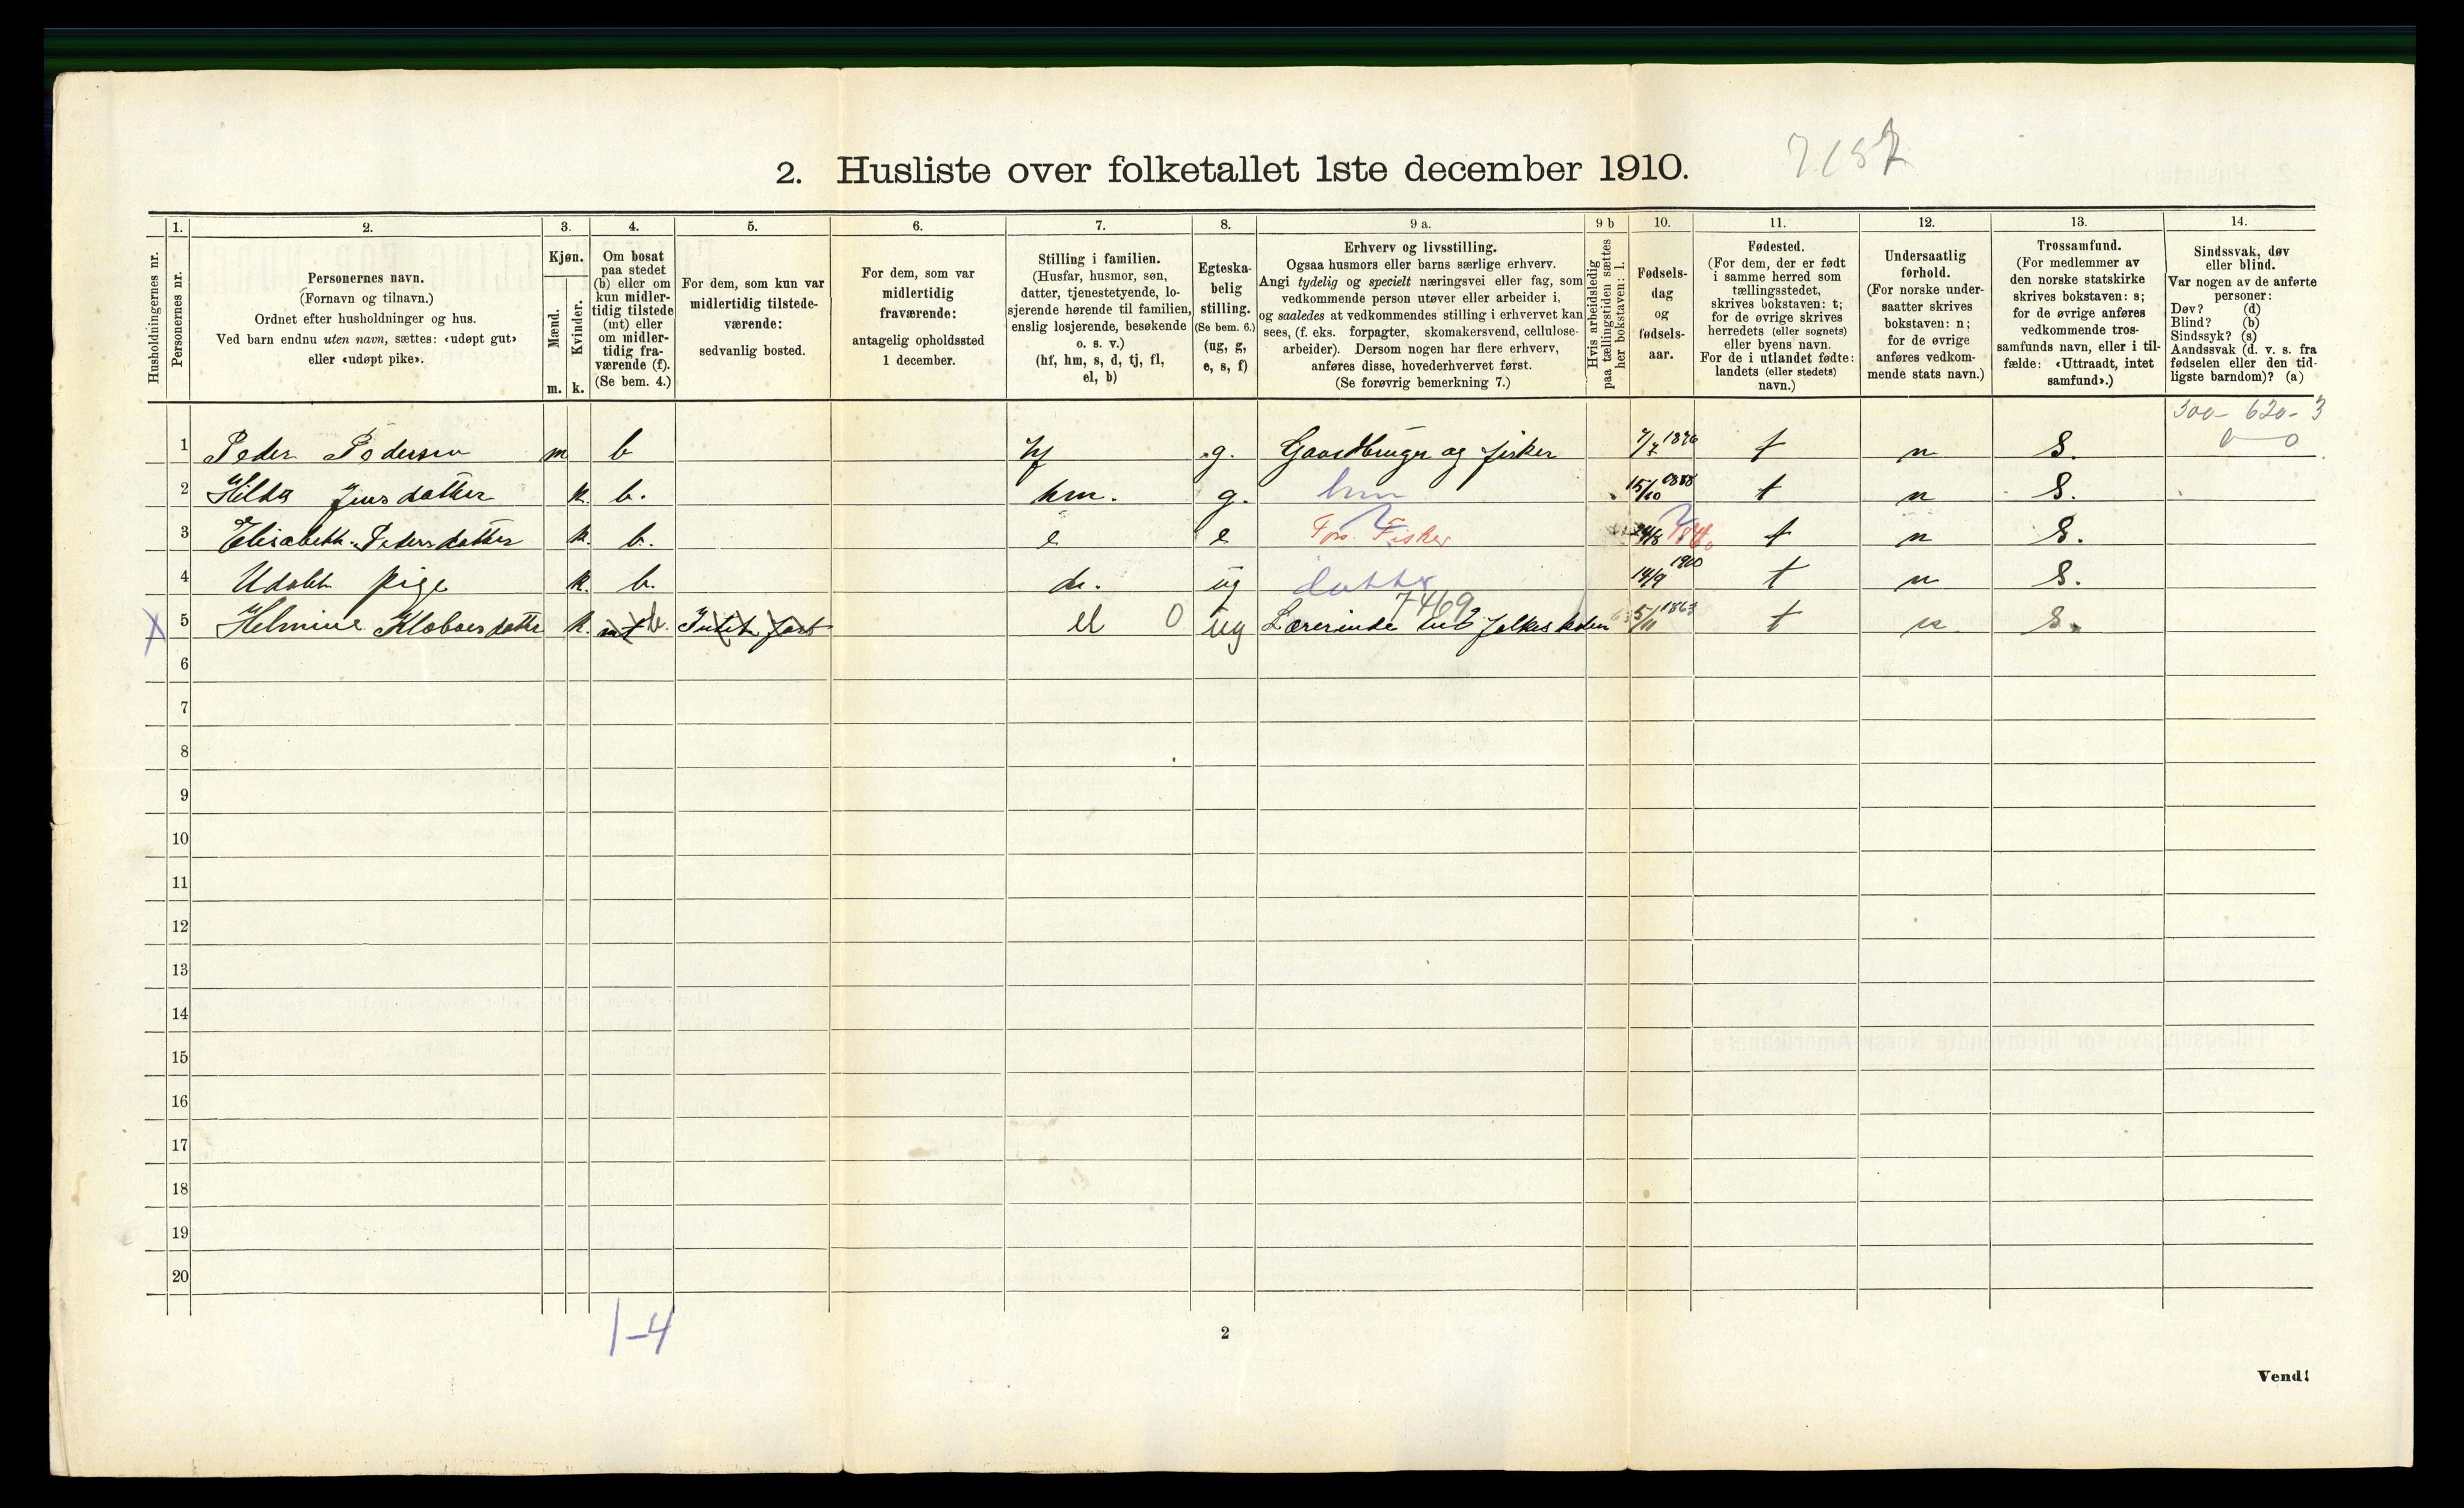 2. Husliste over folketallet 1ste december 1910.
1. 2. 3. 4. 5. 6. 7. 8. 9 a. 9 b 10. 11. 12. 13. 14.
Husholdningernes nr.
Personernes nr.
Personernes navn.
(Fornavn og tilnavn.)
Ordnet efter husholdninger og hus.
Ved barn endnu uten navn, sættes: «udøpt gut»
eller «udøpt pike».
Kjøn.
Mænd.
Kvinder.
m. k.
Om bosat
paa stedet
(b) eller om
kun midler-
tidig tilstede
(mt) eller
om midler-
tidig fra-
værende (f).
(Se bem. 4.)
For dem, som kun var
midlertidig tilstede-
værende:
sedvanlig bosted.
For dem, som var
midlertidig
fraværende:
antagelig opholdssted
1 december.
Stilling i familien.
(Husfar, husmor, søn,
datter, tjenestetyende, lo-
sjerende hørende til familien,
enslig losjerende, besøkende
o. s. v.)
(hf, hm, s, d, tj, fl,
el, b)
Egteska-
belig
stilling.
(Se bem. 6.)
(ug, g,
e, s, f)
Erhverv og livsstilling.
Ogsaa husmors eller barns særlige erhverv.
Angi tydelig og specielt næringsvei eller fag, som
vedkommende person utøver eller arbeider i,
og saaledes at vedkommendes stilling i erhvervet kan
sees, (f. eks. forpagter, skomakersvend, cellulose-
arbeider). Dersom nogen har flere erhverv,
anføres disse, hovederhvervet først.
(Se forøvrig bemerkning 7.)
Hvis arbeidsledig
paa tællingstiden sættes
her bokstaven: l.
Fødsels-
dag
og
fødsels-
aar.
Fødested.
(For dem, der er født
i samme herred som
tællingsstedet,
skrives bokstaven: t;
for de øvrige skrives
herredets (eller sognets)
eller byens navn.
For de i utlandet fødte:
landets (eller stedets)
navn.)
Undersaatlig
forhold.
(For norske under-
saatter skrives
bokstaven: n;
for de øvrige
anføres vedkom-
mende stats navn.)
Trossamfund.
(For medlemmer av
den norske statskirke
skrives bokstaven: s;
for de øvrige anføres
vedkommende tros-
samfunds navn, eller i til-
fælde: «Uttraadt, intet
samfund».)
Sindssvak, døv
eller blind.
Var nogen av de anførte
personer:
Døv? (d)
Blind? (b)
Sindssyk? (s)
Aandssvak (d. v. s. fra
fødselen eller den tid-
ligste barndom)? (a)
300- 620- 3
0-0
1 Peder Pedersen m b hf g. Gaardbruger og fisker 7/7 1876 t n S.
2 Hilda Jensdatter k. b. hm. g. hm 15/10 1888 t n S.
3 Elisabeth Pedersdatter k. b. e e Fors. Fisker t n S.
4 Udøbt pige k. b. d. ug datter 14/9 1910 t n S.
7469
5 Helmine k. mt b. el 0 ug Lærerinde ved folkeskolen 5/11 1863 t n S.
6
7
8
9
10
11
12
13
14
15
16
17
18
19
20
1-4
2
Vend!